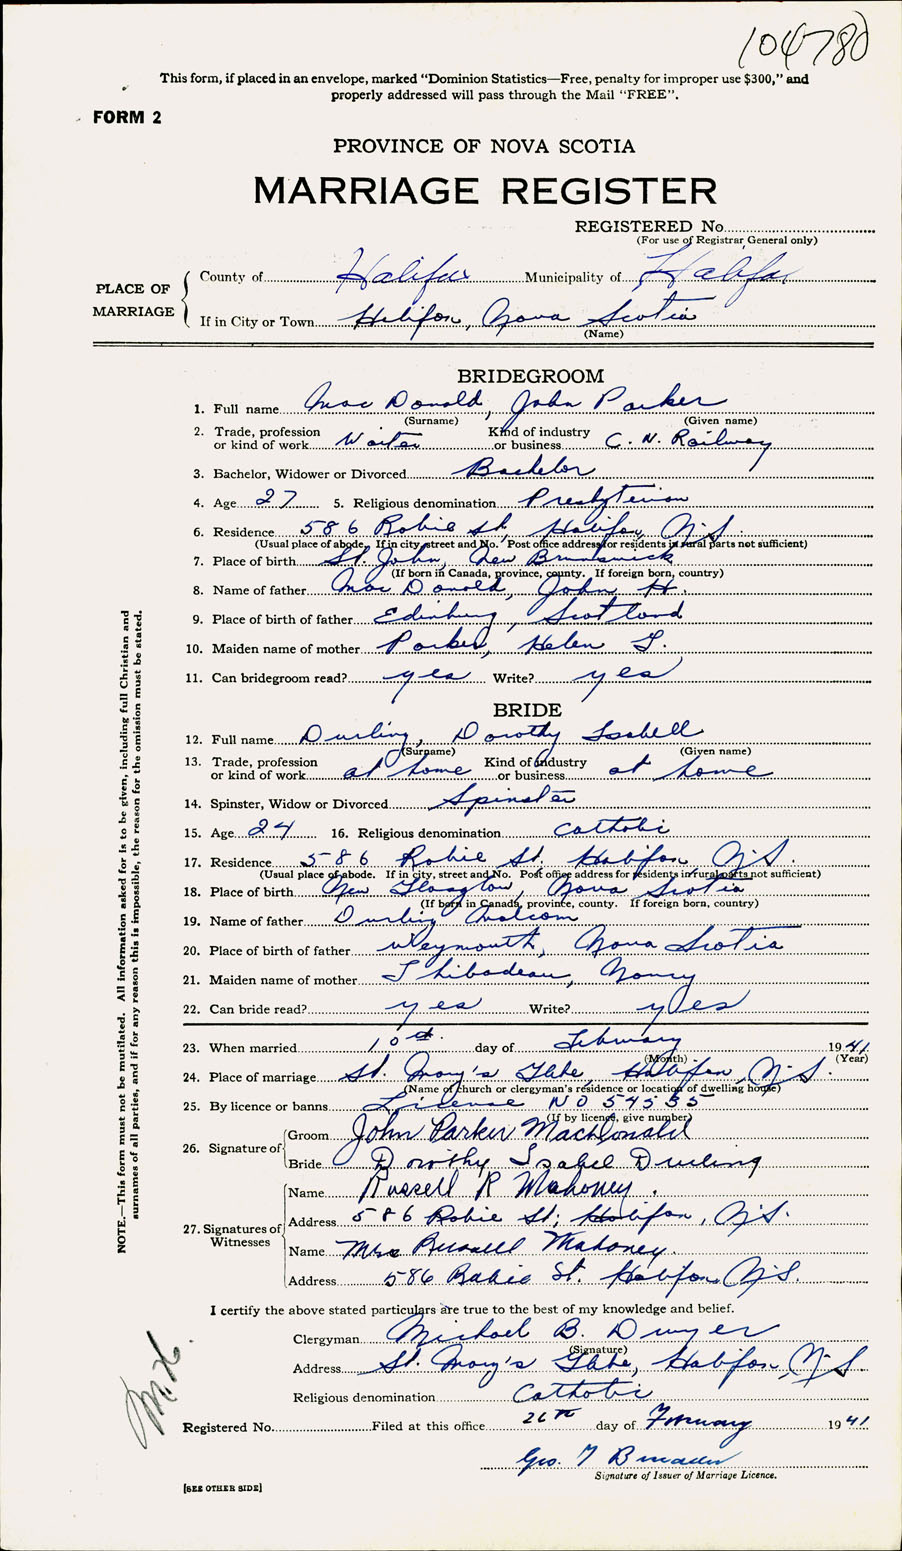 104780
This form, if placed in an envelope, marked "Dominion Statistics—Free, penalty for improper use $300," and
properly addressed will pass through the Mail "FREE".
FORM 2
PROVINCE OF NOVA SCOTIA
MARRIAGE REGISTER
REGISTERED No.
(For use of Registrar General only)
PLACE OF MARRIAGE
County of Halifax Municipality of Halifax
If in City or Town Halifax, Nova Scotia
(Name)
BRIDEGROOM
1. Full name Mac Donald, John Parker
(Surname) (Given name)
2. Trade, profession or kind of work Waiter Kind of industry or business C. N. Railway
3. Bachelor, Widower or Divorced Bachelor
4. Age 27 5. Religious denomination Presbyterian
6. Residence 586 Robie St, Halifax, N.S.
(Usual place of abode. If in city, street and No. Post office address for residents in rural parts not sufficient)
7. Place of birth St. John, New Brunswick
(If born in Canada, province, county. If foreign born, country)
8. Name of father Mac Donald, John H.
9. Place of birth of father Edinburg, Scotland
10. Maiden name of mother Parker, Helen T.
11. Can bridegroom read? yes Write? yes
BRIDE
12. Full name Durling, Dorothy Isabell
(Surname) (Given name)
13. Trade, profession or kind of work at home Kind of industry or business at home
14. Spinster, Widow or Divorced Spinster
15. Age 24 16. Religious denomination Catholic
17. Residence 586 Robie St. Halifax N.S.
(Usual place of abode. If in city, street and No. Post office address for residents in rural parts not sufficient)
18. Place of birth New Glasgow, Nova Scotia
(If born in Canada, province, county. If foreign born, country)
19. Name of father Durling Malcom
20. Place of birth of father Weymouth, Nova Scotia
21. Maiden name of mother Thibodeau, Nancy
22. Can bride read? yes Write? yes
23. When married 10th day of February 1941
(Month) (Year)
24. Place of marriage St. Mary's Glebe Halifax, N.S.
(Name of church or clergyman's residence or location of dwelling house)
25. By licence or banns License NO 54535
(If by licence, give number)
26. Signature of
Groom John Parker MacDonald
Bride Dorothy Isabel Durling
27. Signatures of Witnesses
Name Russell R Mahoney.
Address 586 Robie St; Halifax, N.S.
Name Mrs Russell Mahoney.
Address 586 Robie St. Halifax, N.S.
I certify the above stated particulars are true to the best of my knowledge and belief.
Clergyman Michael B. Dwyer
(Signature)
Address St. Mary's Glebe, Halifax, N.S.
Religious denomination Catholic
Registered No. Filed at this office 26th day of February 1941
Geo. T
Signature of Issuer of Marriage Licence.
[SEE OTHER SIDE]
NOTE.—This form must not be mutilated. All information asked for is to be given, including full Christian and
surnames of all parties, and if for any reason this is impossible, the reason for the omission must be stated.